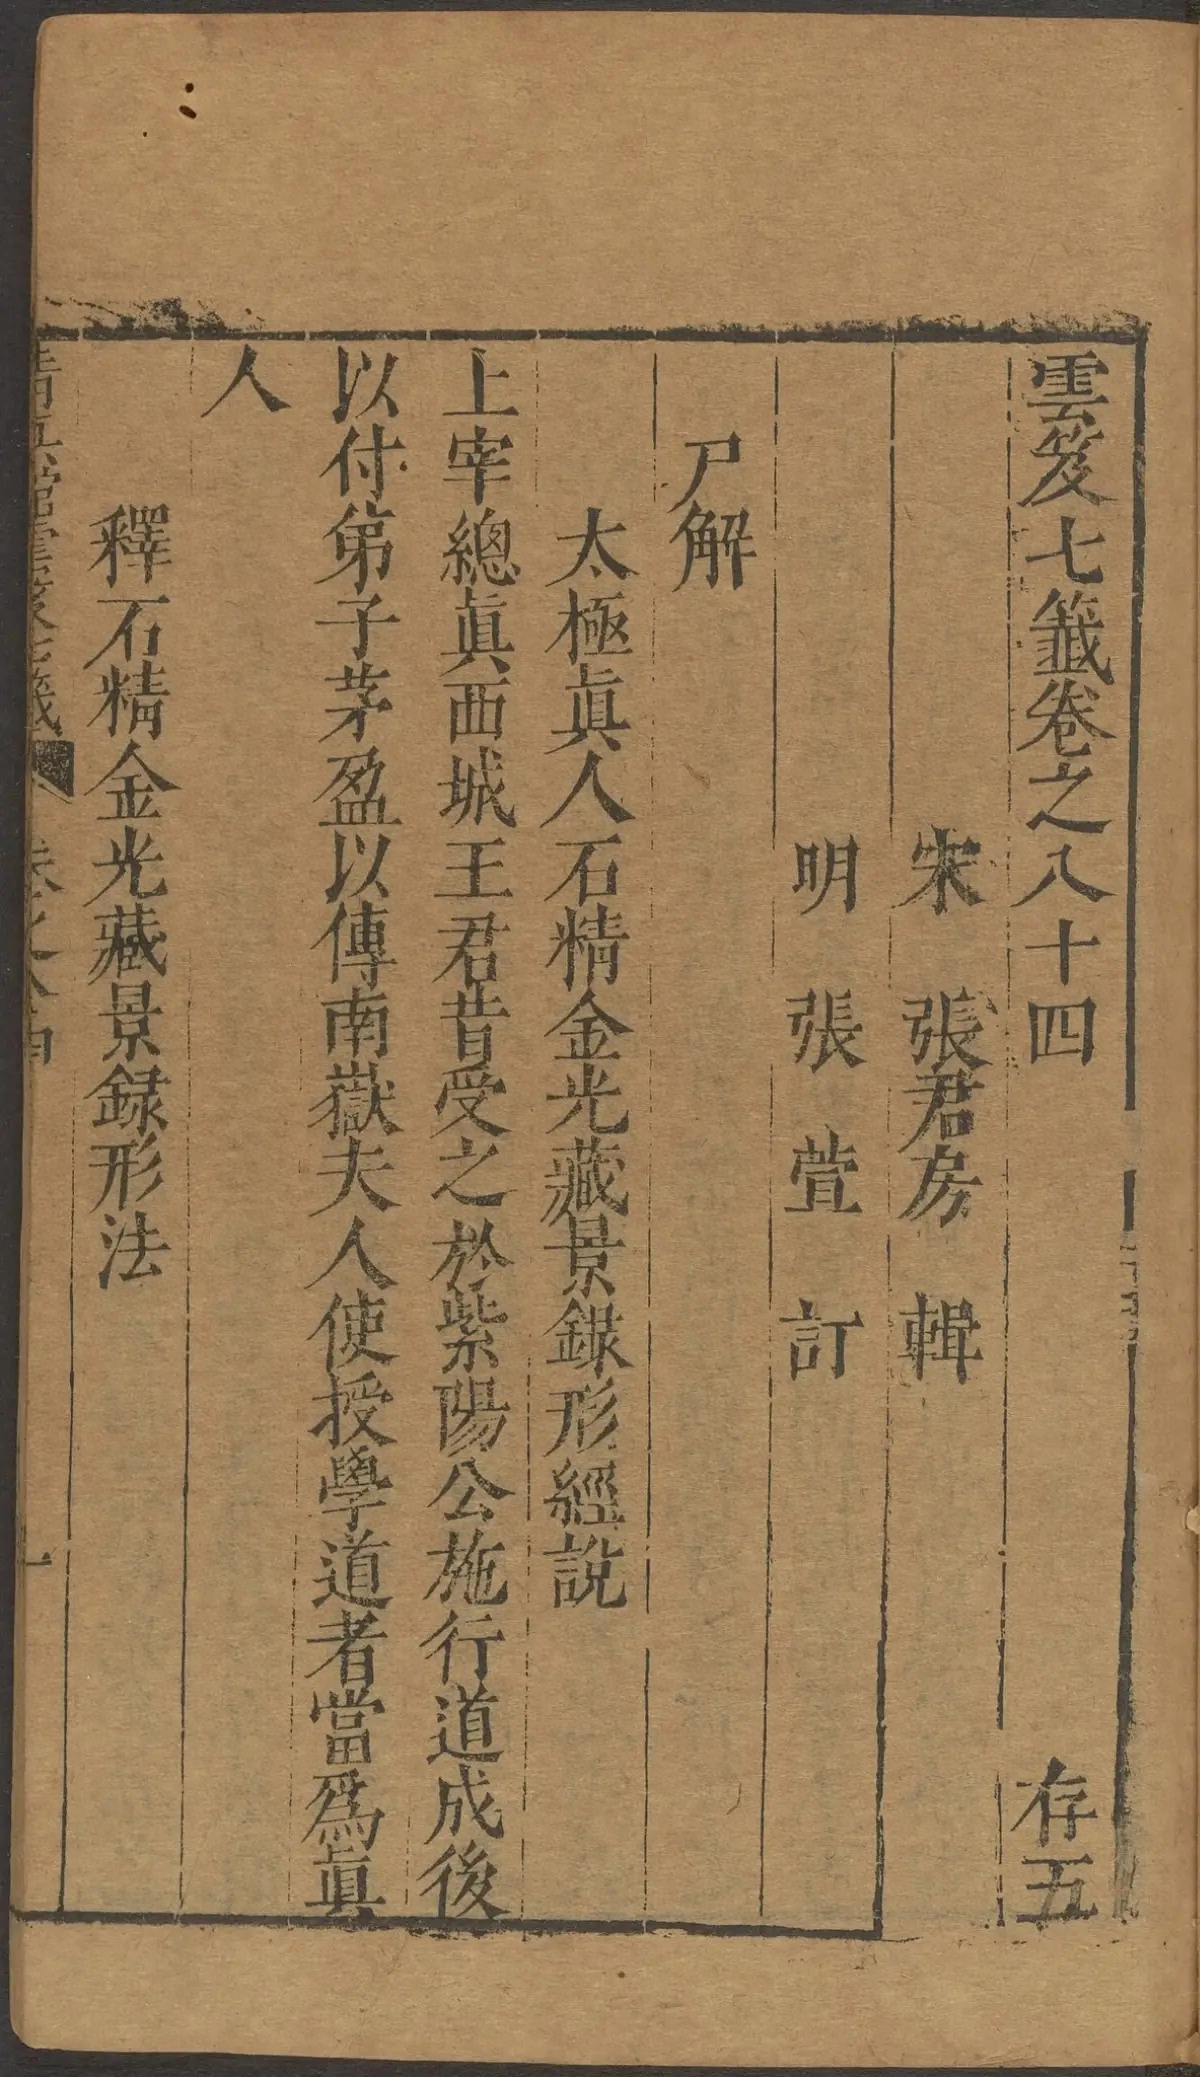 雲笈七籤卷之八十四 存五
宋 張君房 輯
明 張萱 訂
尸解
太極眞人石精金光藏景録形經說
上宰總眞西城王君昔受之於紫陽公施行道成後
以付弟子茅盈以傳南嶽夫人使授學道者當爲眞
人
釋石精金光藏景録形法